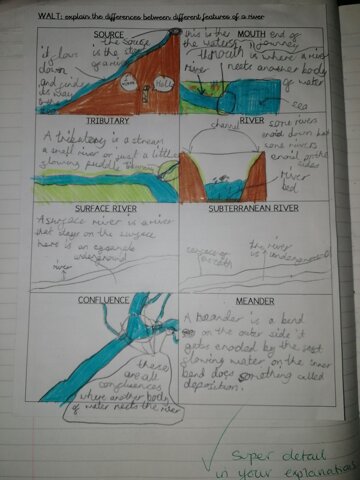 WALT: explain the differences between different features of a river
SOURCE
the source
is the start
of a river
it flows
down
and finds
its way
MOUTH
this is the end of
the waters journey
the mouth is where a river
meets another body
of water
river
sea
TRIBUTARY
A tributary is a stream
a small river or just a little
flowing puddle
RIVER
channel
some rivers
erode down but
some rivers
erode on the
sides
river
bed
SURFACE RIVER
A surface river is a river
that stays on the surface
here is an example
underground
river
SUBTERRANEAN RIVER
the river
is underground
CONFLUENCE
these
are all
confluences
where another body
of water meets the river
MEANDER
A meander is a bend
on the outer side it
gets eroded by the fast
flowing water on the inner
bend does something called
deposition.
Super detail
in your explanations